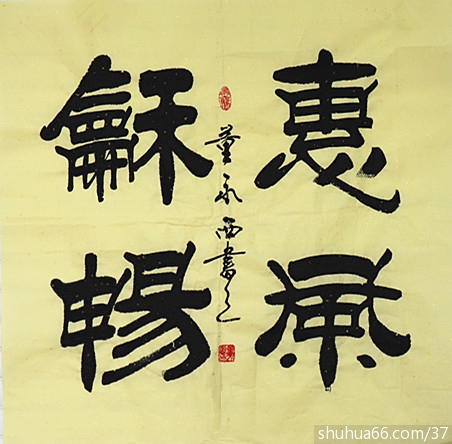 惠風
龢暢
董永西書之
shuhua66.com/37